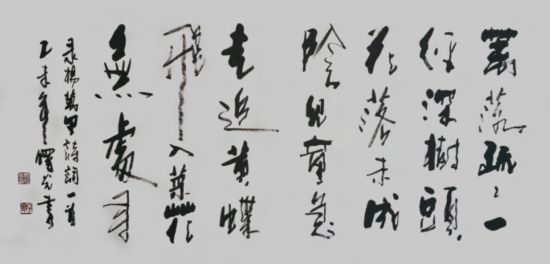 籬落疏〻一
徑深樹頭
花落未成
陰兒童急
走追黄蝶
飛入菜花
無處尋
录楊萬里詩詞一首
乙未年書